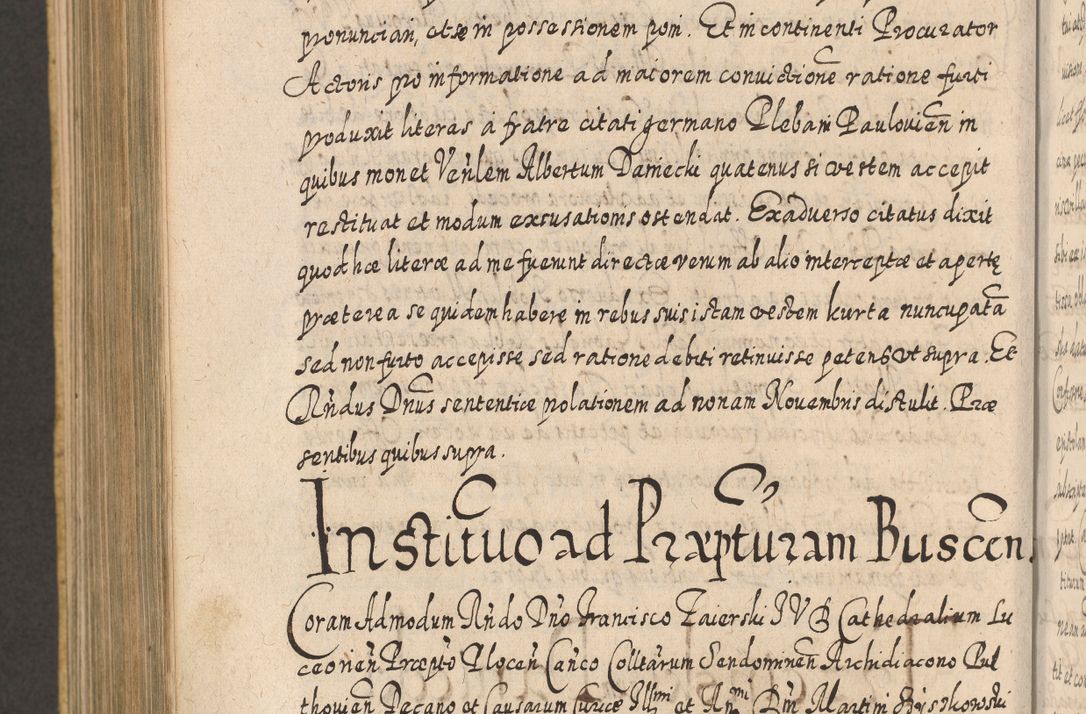 pronunciari, et se in possessionem poni. Et in continenti Procurator
Actoris pro informatione ad maiorem convictionē ratione furti
produxit literas á fratre citati germano Plebani Pauloviēn in
quibus monet Veñlem Albertum Damiecki quatenus si vestem accepit
restituat et modum excusationis ostendat. Ex adverso citatus dixit
quod hæ literæ ad me fuerunt directæ verum ab alio interceptæ et apertę
præterea se quidem habere in rebus suis istam vestem kurta nuncupatā
sed non furto accepisse sed ratione debiti retinuisse petens vt supra. Et
Rñdus Dnūs sententiæ prolationem ad nonam Novembris distulit. Præ
sentibus quibus supra.
Institūo ad Præptūram Buscēn.
Coram Admodum Rñdo Dño Francisco Zaierski IVD Cathedralium Lu
ceorieñ Præpto Plocen̄ Can̄co Colltārum Sendomirien̄ Archidiacono Pul
thovien̄ Decano et Causarum Curiæ Illmi et Rñmi Dni Martini Szyszkowski